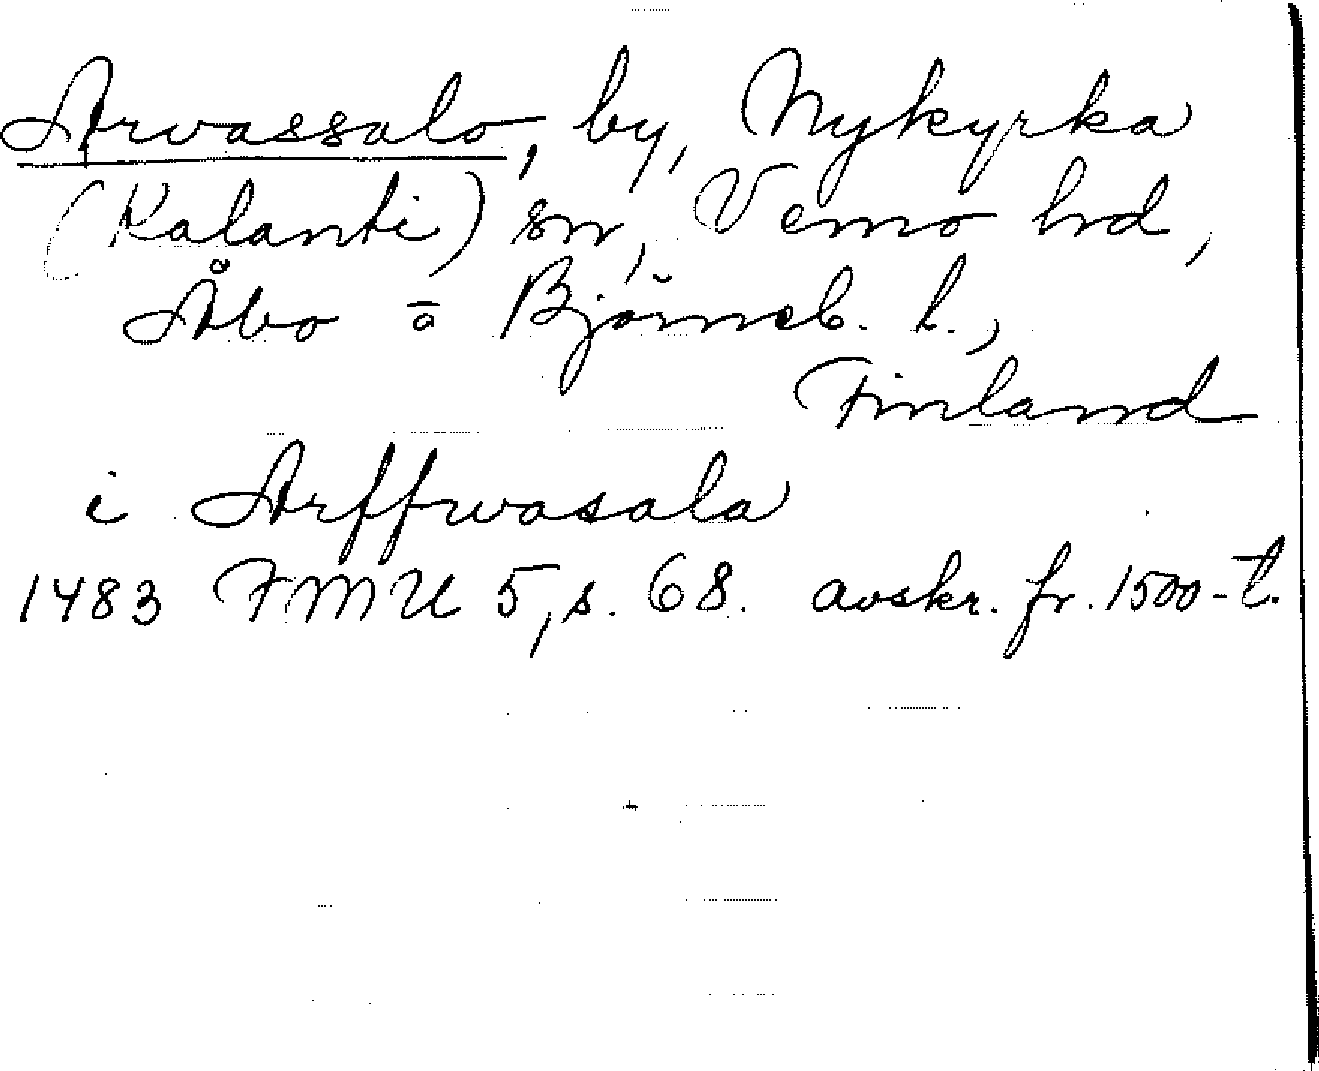 Arvassalo, by, Nykyrka
(Kalanti) sn, Vemo hd,
Åbo o Björneb. l.,
Finland
i Arffwasala
1483 FMU 5, s. 68. avskr. fr. 1500-t.